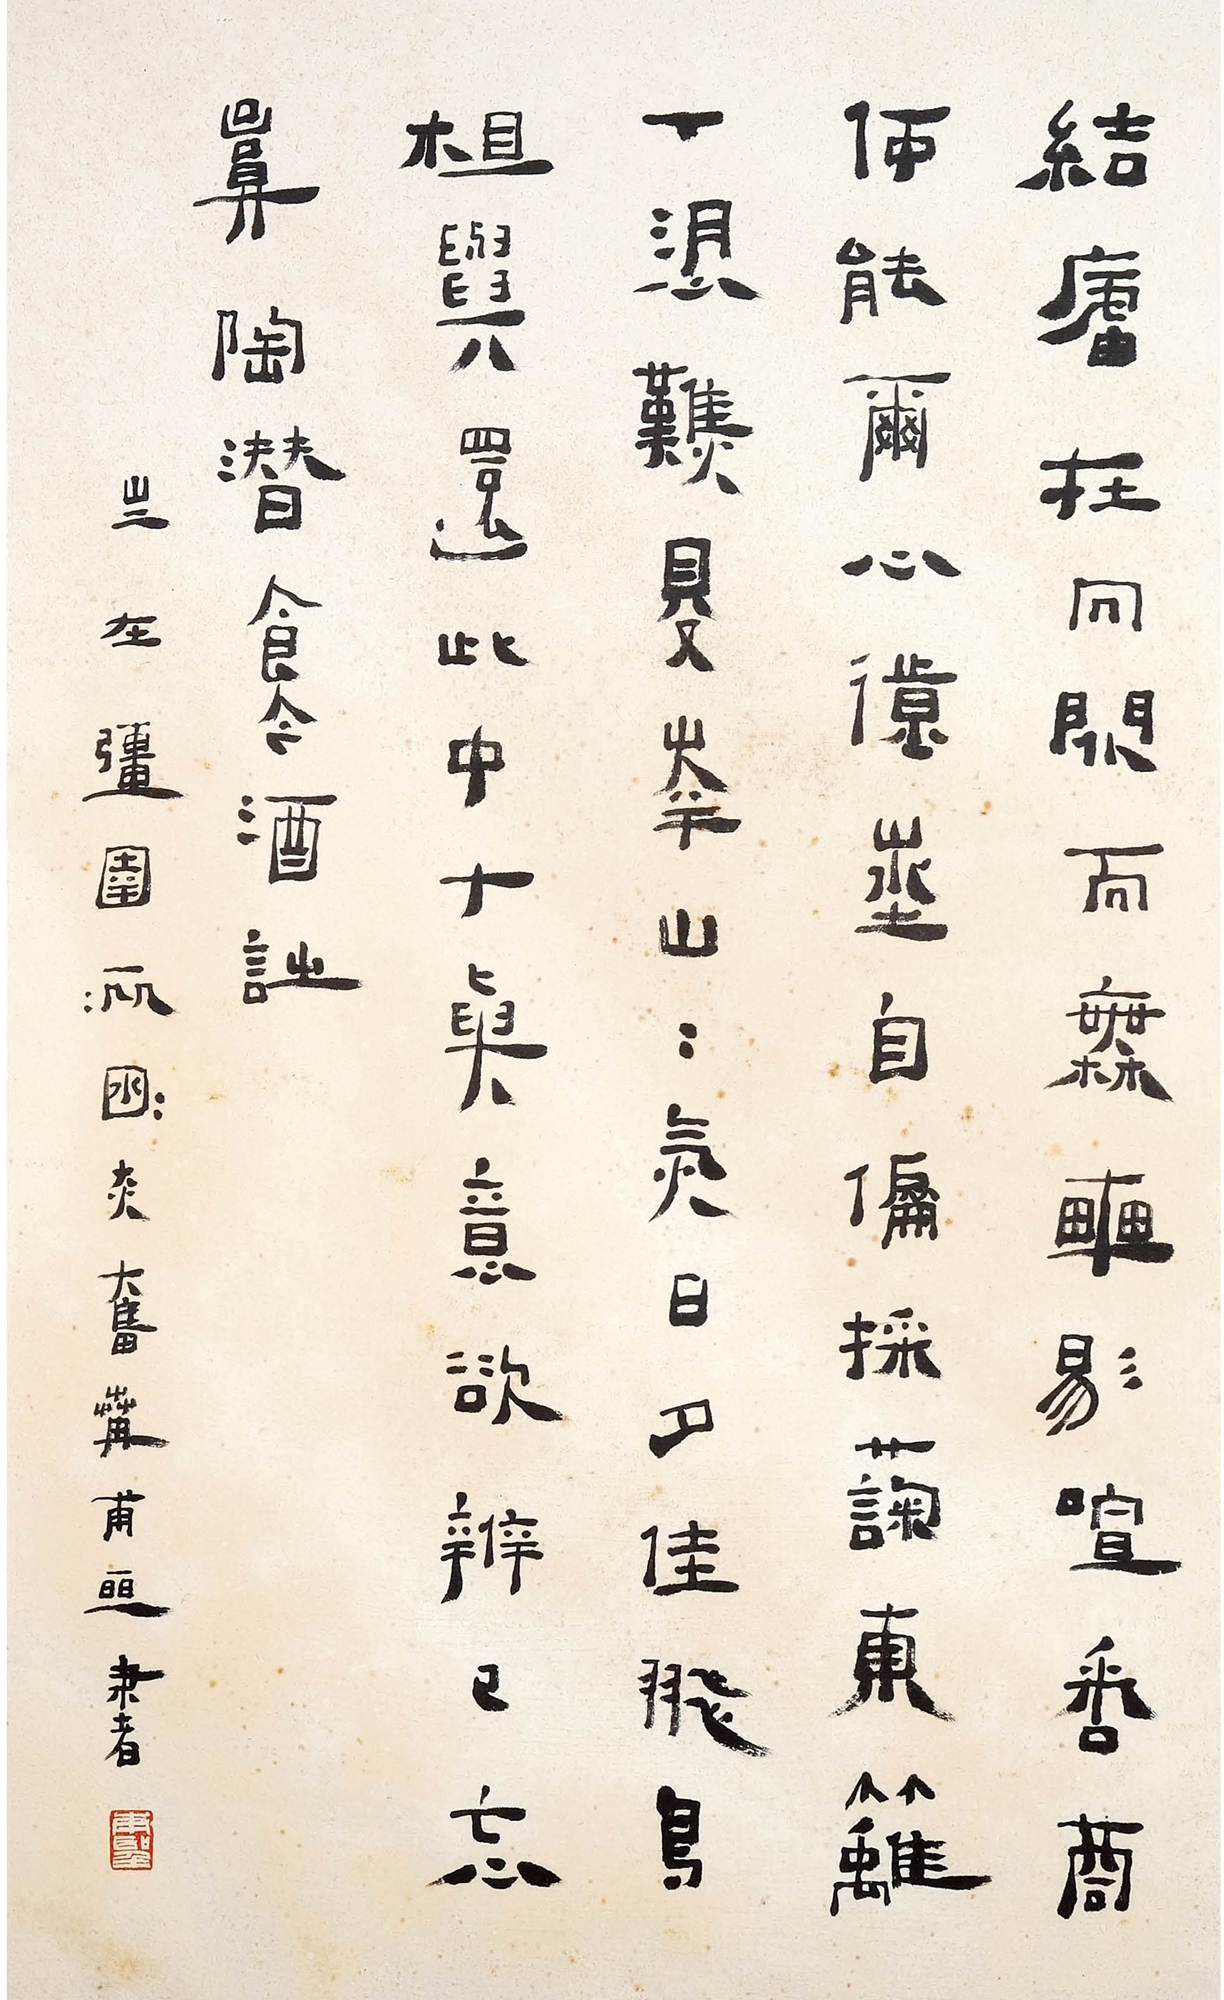 結廬在人閒而無車馬喧問君
何能爾心遠地自偏採菊東籬
下悠然見南山：氣日夕佳飛鳥
相與還此中有真意欲辨已忘
言 陶潛飲酒詩
在彊圉 書